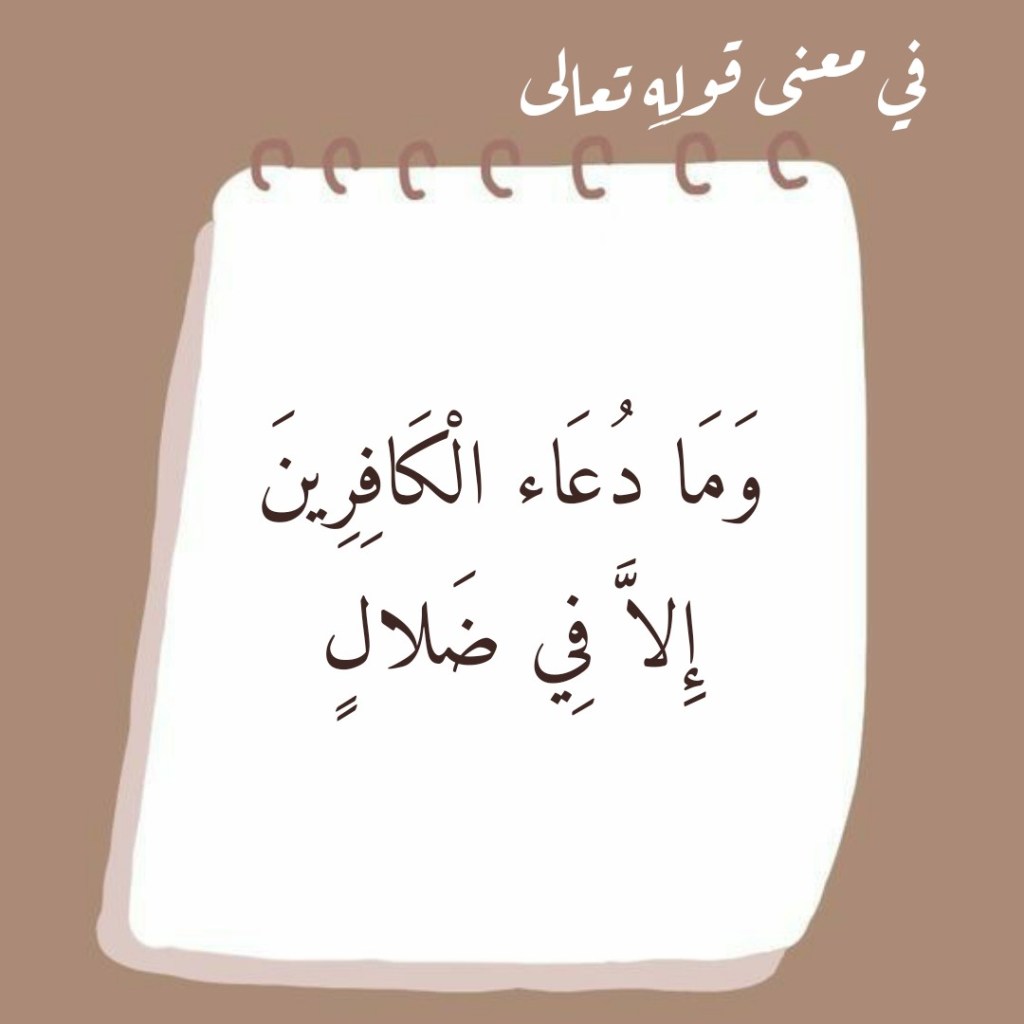 في معنى قولِهِ تعالى
وَمَا دُعَاء الْكَافِرِينَ
إِلاَّ فِي ضَلالٍ